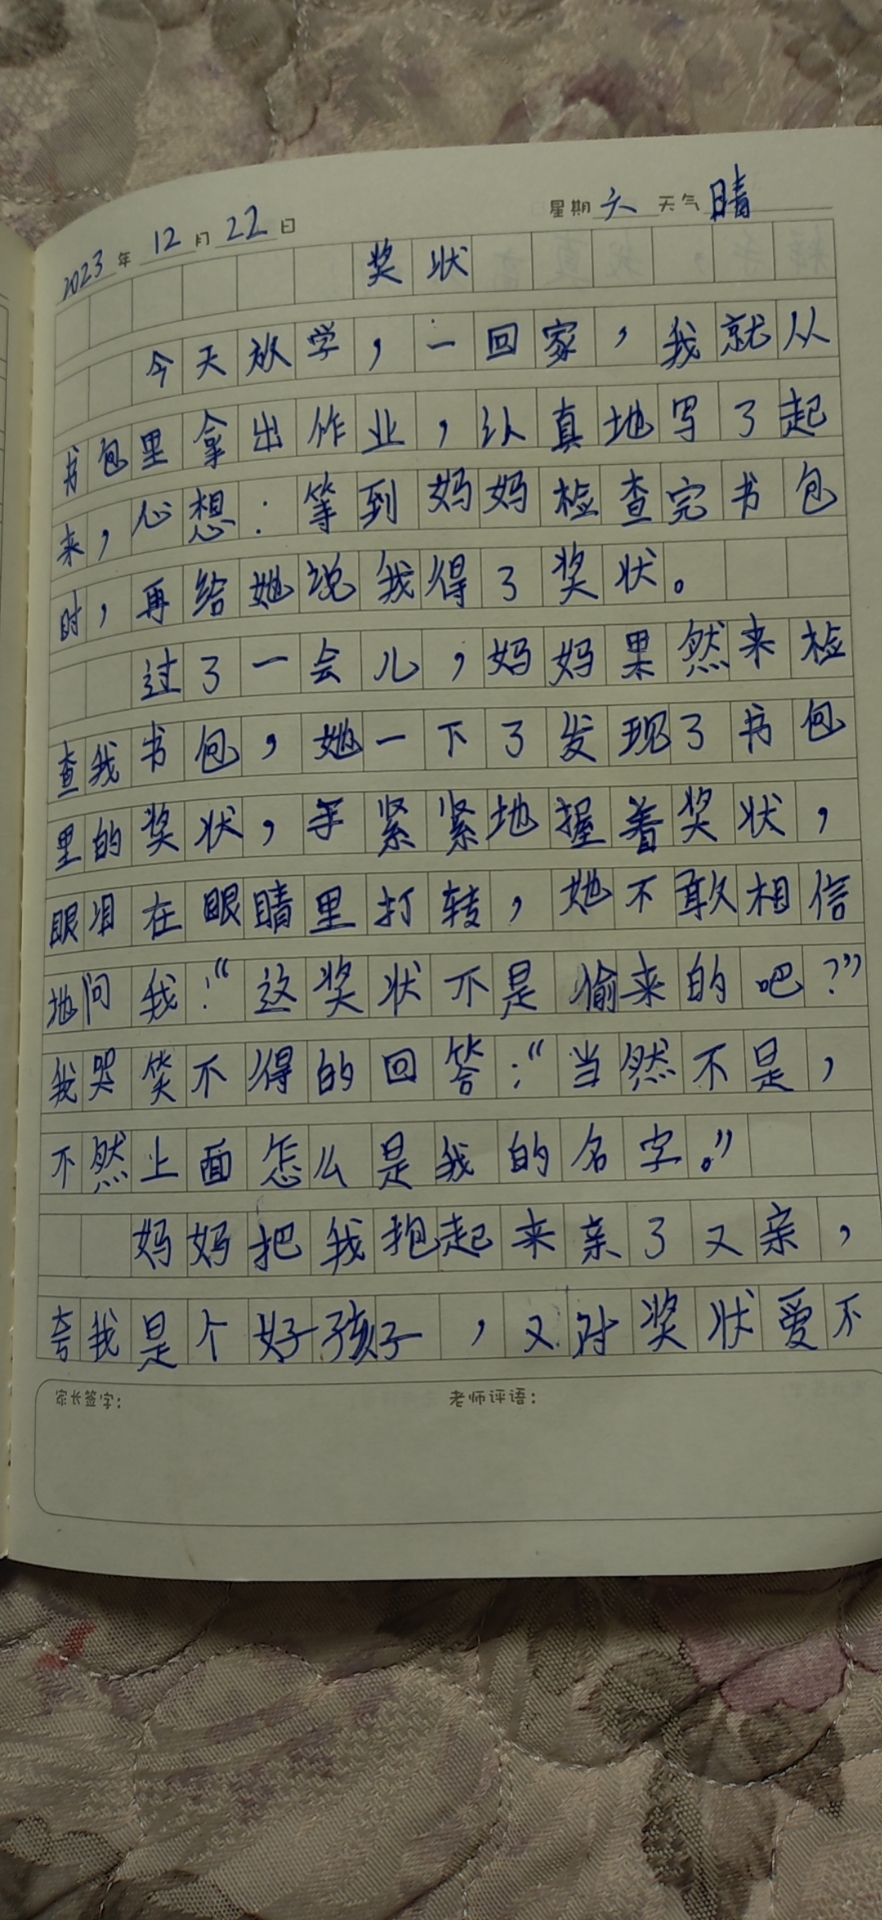 2023年12月22日 星期六 天气晴
奖状
今天放学，一回家，我就从
书包里拿出作业，认真地写了起
来，心想：等到妈妈检查完书包
时，再给她说我得了奖状。
过了一会儿，妈妈果然来检
查我书包，她一下了发现了书包
里的奖状，手紧紧地握着奖状，
眼泪在眼睛里打转，她不敢相信
地问我：“这奖状不是偷来的吧？”
我哭笑不得的回答：“当然不是，
不然上面怎么是我的名字。”
妈妈把我抱起来亲了又亲，
夸我是个好孩子，又对奖状爱不
家长签字： 老师评语：